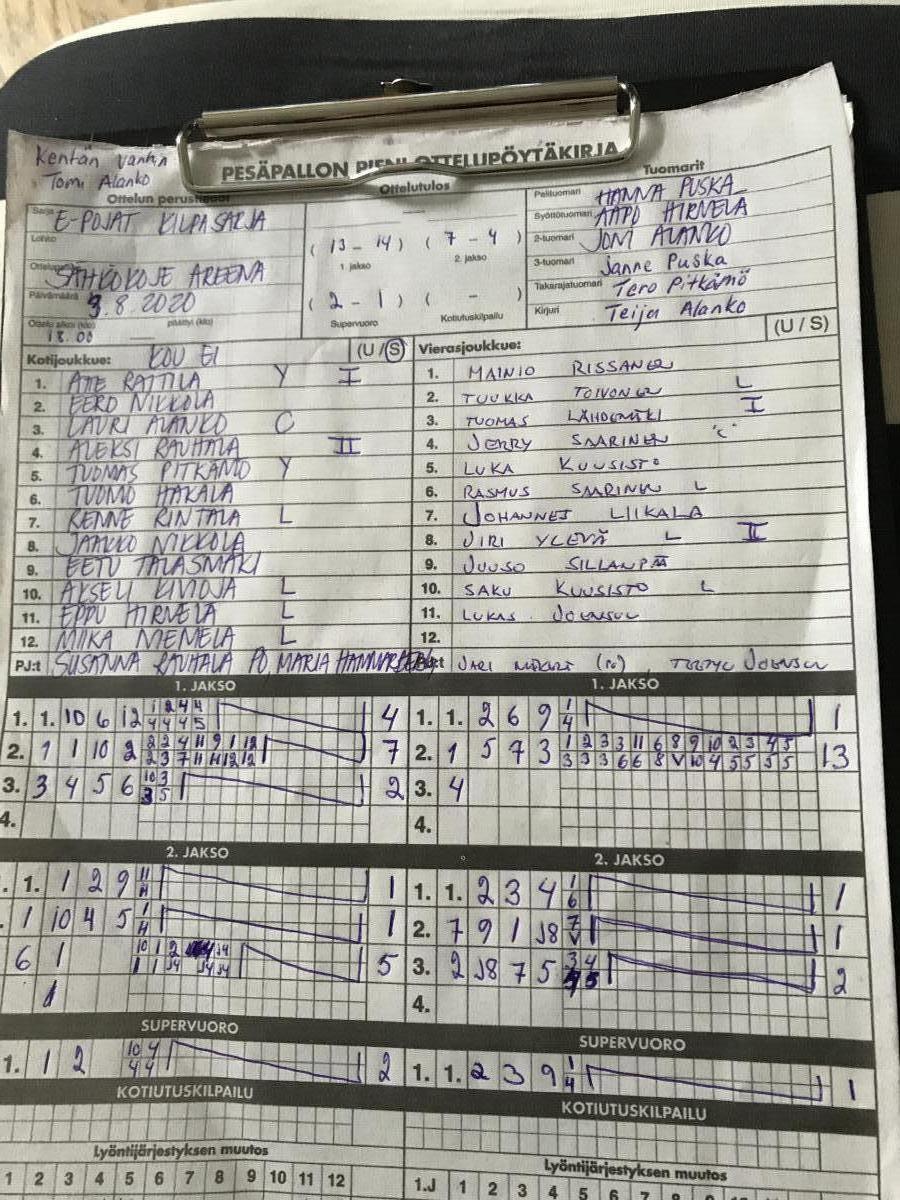 Kentän vanhin
Tomi Alanko
PESÄPALLON PIENI OTTELUPÖYTÄKIRJA
Ottelun perustiedot
Ottelutulos
Tuomarit
Sarja E-POJAT KILPASARJA
Lohko
SÄHKÖKOJE AREENA
Päivämäärä 9.8.2020
Ottelu alkoi (klo) 18.00 päättyi (klo)
( 13 - 14 ) ( 7 - 4 )
1. jakso 2. jakso
( 2 - 1 ) ( - )
Supervuoro Kotiutuskilpailu
Pelituomari HANNA PUSKA
Syöttötuomari AAPO HIRVELÄ
2-tuomari JONI ALANKO
3-tuomari Janne Puska
Takarajatuomari Tero Pitkämö
Kirjuri Teija Alanko
Kotijoukkue: KOU EI (U / S)
1. ATTE RATTILA Y I
2. EERO NIKKOLA
3. LAURI ALANKO C
4. ALEKSI RAUHALA II
5. TUOMAS PITKÄMÖ Y
6. TUOMO HAKALA
7. RENNE RINTALA L
8. JAAKKO NIKKOLA
9. EETU TALASMÄKI
10. AKSELI KIVIOJA L
11. EPPU HIRVELÄ L
12. MIIKA NIEMELÄ L
PJ:t SUSANNA RAUHALA PJ, MARIA
Vierasjoukkue: (U / S)
1. MAINIO RISSANEN
2. TUUKKA TOIVONEN L
3. TUOMAS LÄHDEMÄKI I
4. JERRY SAARINEN "C"
5. LUKA KUUSISTO
6. RASMUS SAARINEN L
7. JOHANNES LIIKALA
8. JIRI YLEVÄ L II
9. JUUSO SILLANPÄÄ
10. SAKU KUUSISTO L
11. LUKAS JOENSUU
12.
JARI (PJ), JOENSUU
1. JAKSO
1. 1. 10 6 12 1 2 4 4 4
4 4 4 5
2. 1 1 10 2 2 2 4 11 9 1 12 7
2 3 7 11 11 12 12
3. 3 4 5 6 10 3 2
3 5
4.
1. JAKSO
1. 1. 2 6 9 1 1
4
2. 1 5 7 3 1 2 3 3 11 6 8 9 10 2 3 4 5 13
3 3 3 6 6 8 V 10 4 5 5 5 5
3. 4
4.
2. JAKSO
1. 1 2 9 11 1
11
1 10 4 5 1 1
11
6 1 10 1 2 5
1 1 J4 J4 J4
1
2. JAKSO
1. 1. 2 3 4 1 1
6
2. 7 9 1 J8 7 1
V
3. 2 J8 7 5 3 4 2
5
4.
SUPERVUORO
1. 1 2 10 4 2
4 4
SUPERVUORO
1. 1. 2 3 9 1 1
4
KOTIUTUSKILPAILU
KOTIUTUSKILPAILU
Lyöntijärjestyksen muutos
1 2 3 4 5 6 7 8 9 10 11 12
Lyöntijärjestyksen muutos
1.J 1 2 3 4 5 6 7 8 9 10 11